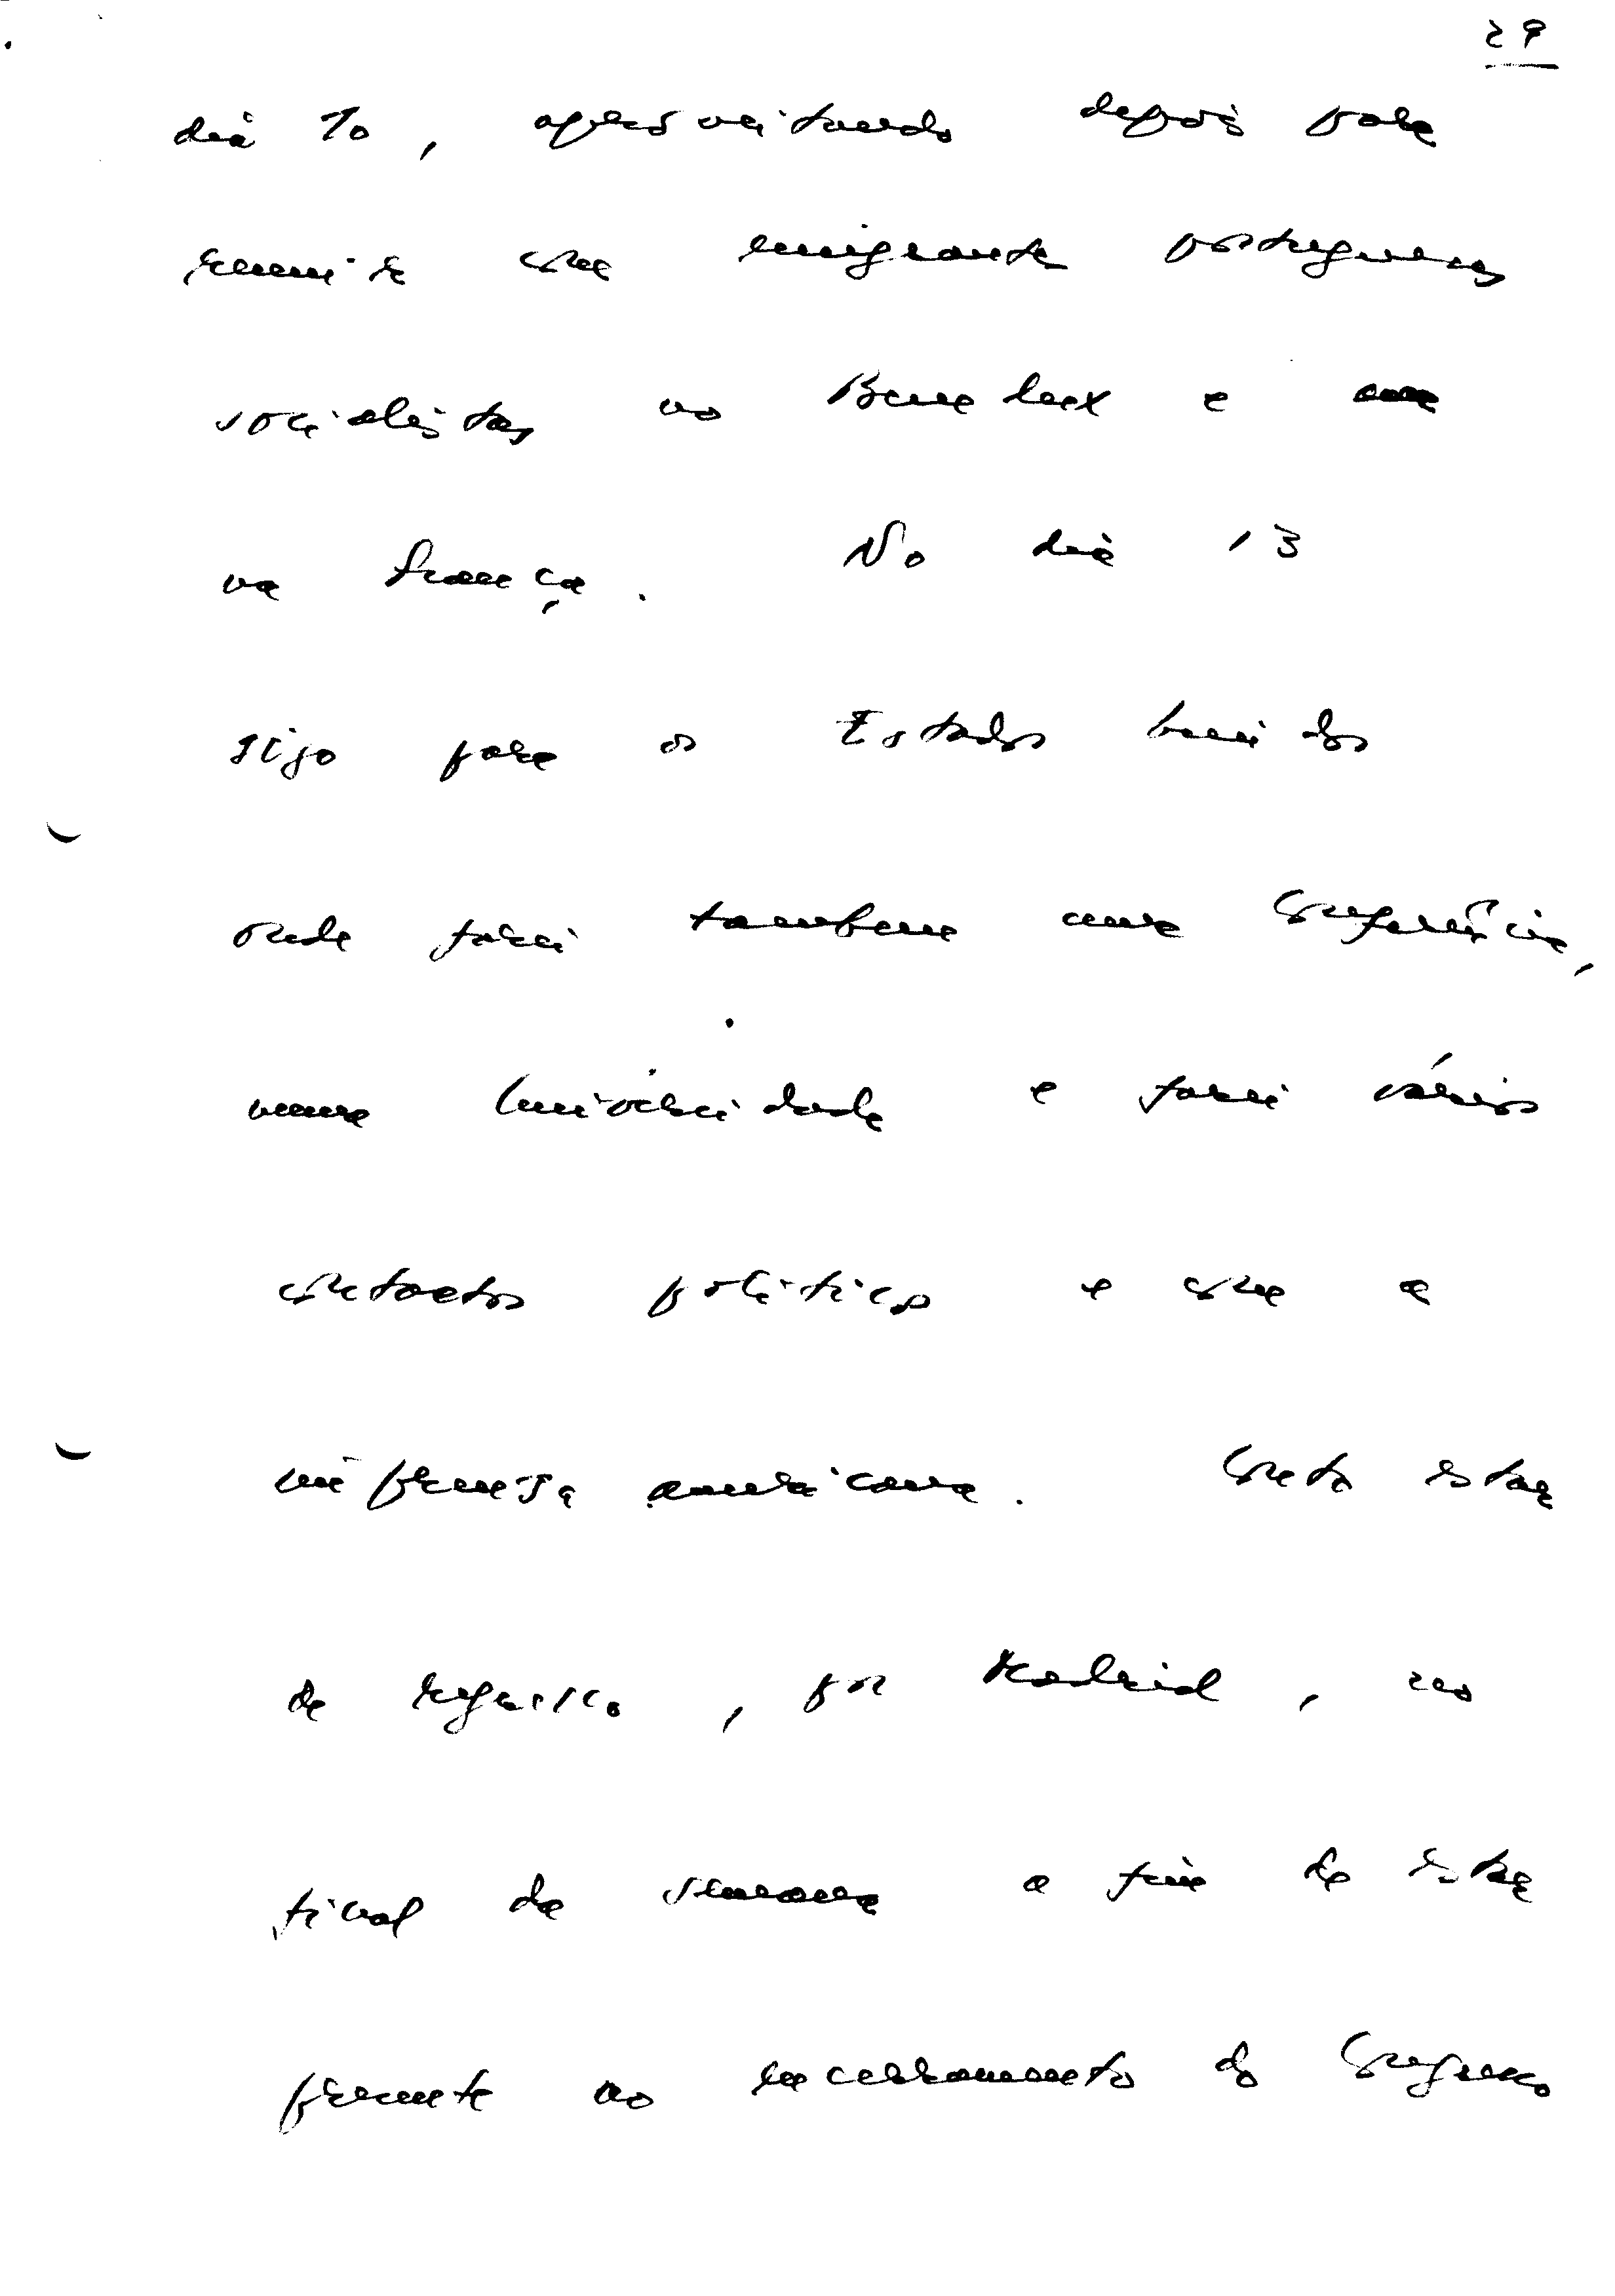 29
dia 10, aproveitando depois para
reunir com emigrantes portugueses
socialistas no Benelux e
na França. No dia 13
sigo para os Estados Unidos
onde farei também uma Conferência,
numa Universidade e farei vários
contactos políticos e com a
imprensa americana. Conto estar
de regresso, por Madrid, no
final da semana a fim de estar
presente no encerramento do Congresso